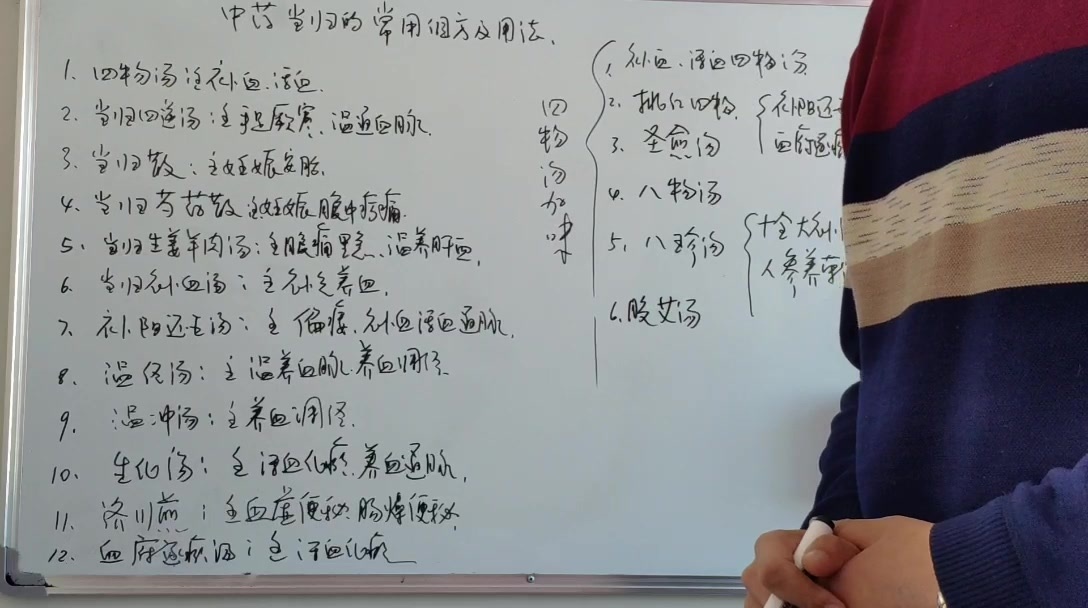 中药当归的常用组方及用法.
1. 四物汤:主补血.活血.
2. 当归四逆汤:主手足厥寒、温通血脉.
3. 当归散:主妊娠安胎.
4. 当归芍药散:主妊娠腹中疼痛.
5. 当归生姜羊肉汤:主腹痛里急、温养肝血.
6. 当归补血汤:主补气养血.
7. 补阳还五汤:主偏瘘.补血活血通脉.
8. 温经汤:主温养血脉.养血调经
9. 温冲汤:主养血调经.
10. 生化汤:主活血化瘀.养血通脉.
11. 济川煎:主血虚便秘.肠燥便秘.
12. 血府逐瘀汤:主活血化瘀
四物汤加味
1. 补血.活血四物汤
2. 桃红四物
补阳还
血府逐瘀
3. 圣愈汤
4. 八物汤
5. 八珍汤
十全大补
人参养荣
6. 胶艾汤